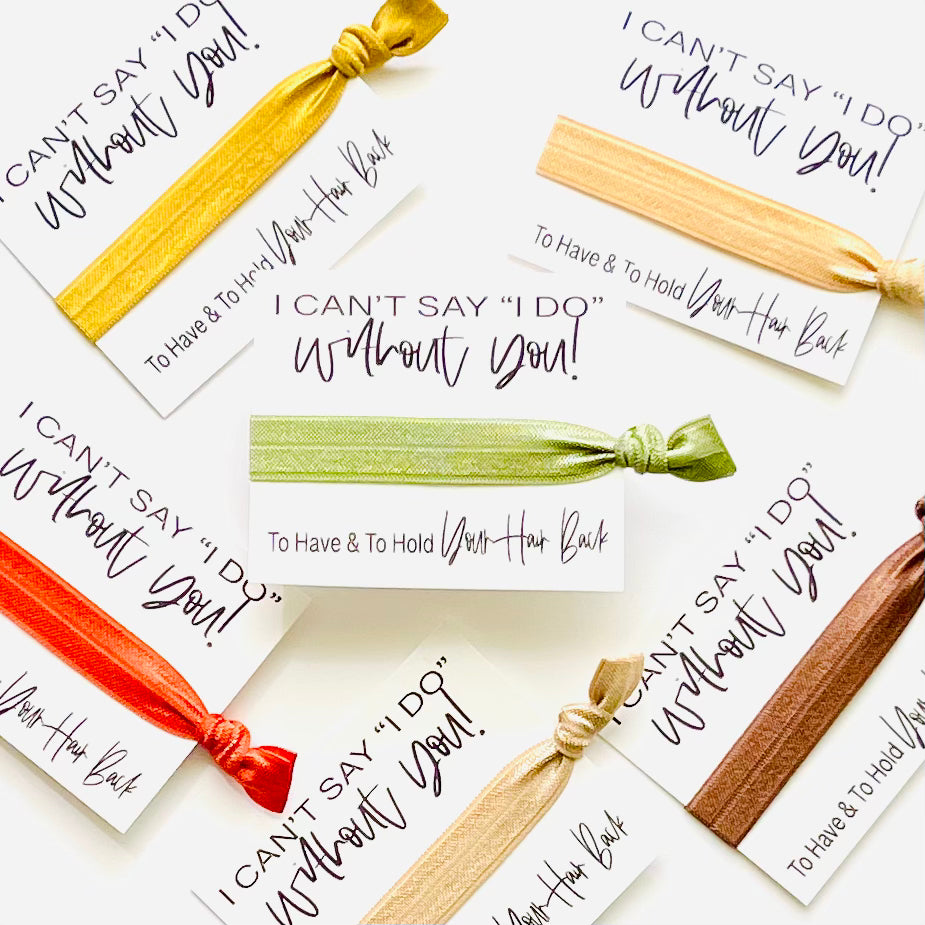 I CAN'T SAY “I DO
without you!
To Have & To Hold Your Hair Back
I CAN'T SAY “I DO”
without you!
To Have & To Hold Your Hair Back
I CAN'T SAY “I DO”
without you!
To Have & To Hold Your Hair Back
I CAN'T SAY “I DO”
without you!
Your Hair Back
I CAN'T SAY “I DO”
without you!
Your Hair Back
I CAN'T SAY “I DO”
without you!
To Have & To Hold You